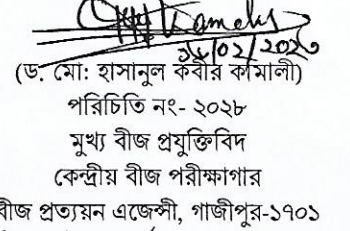 ১৮/০২/২০২৩
(ড. মো: হাসানুল কবীর কামালী)
পরিচিতি নং- ২০২৮
মুখ্য বীজ প্রযুক্তিবিদ
কেন্দ্রীয় বীজ পরীক্ষাগার
বীজ প্রত্যয়ন এজেন্সী, গাজীপুর-১৭০১